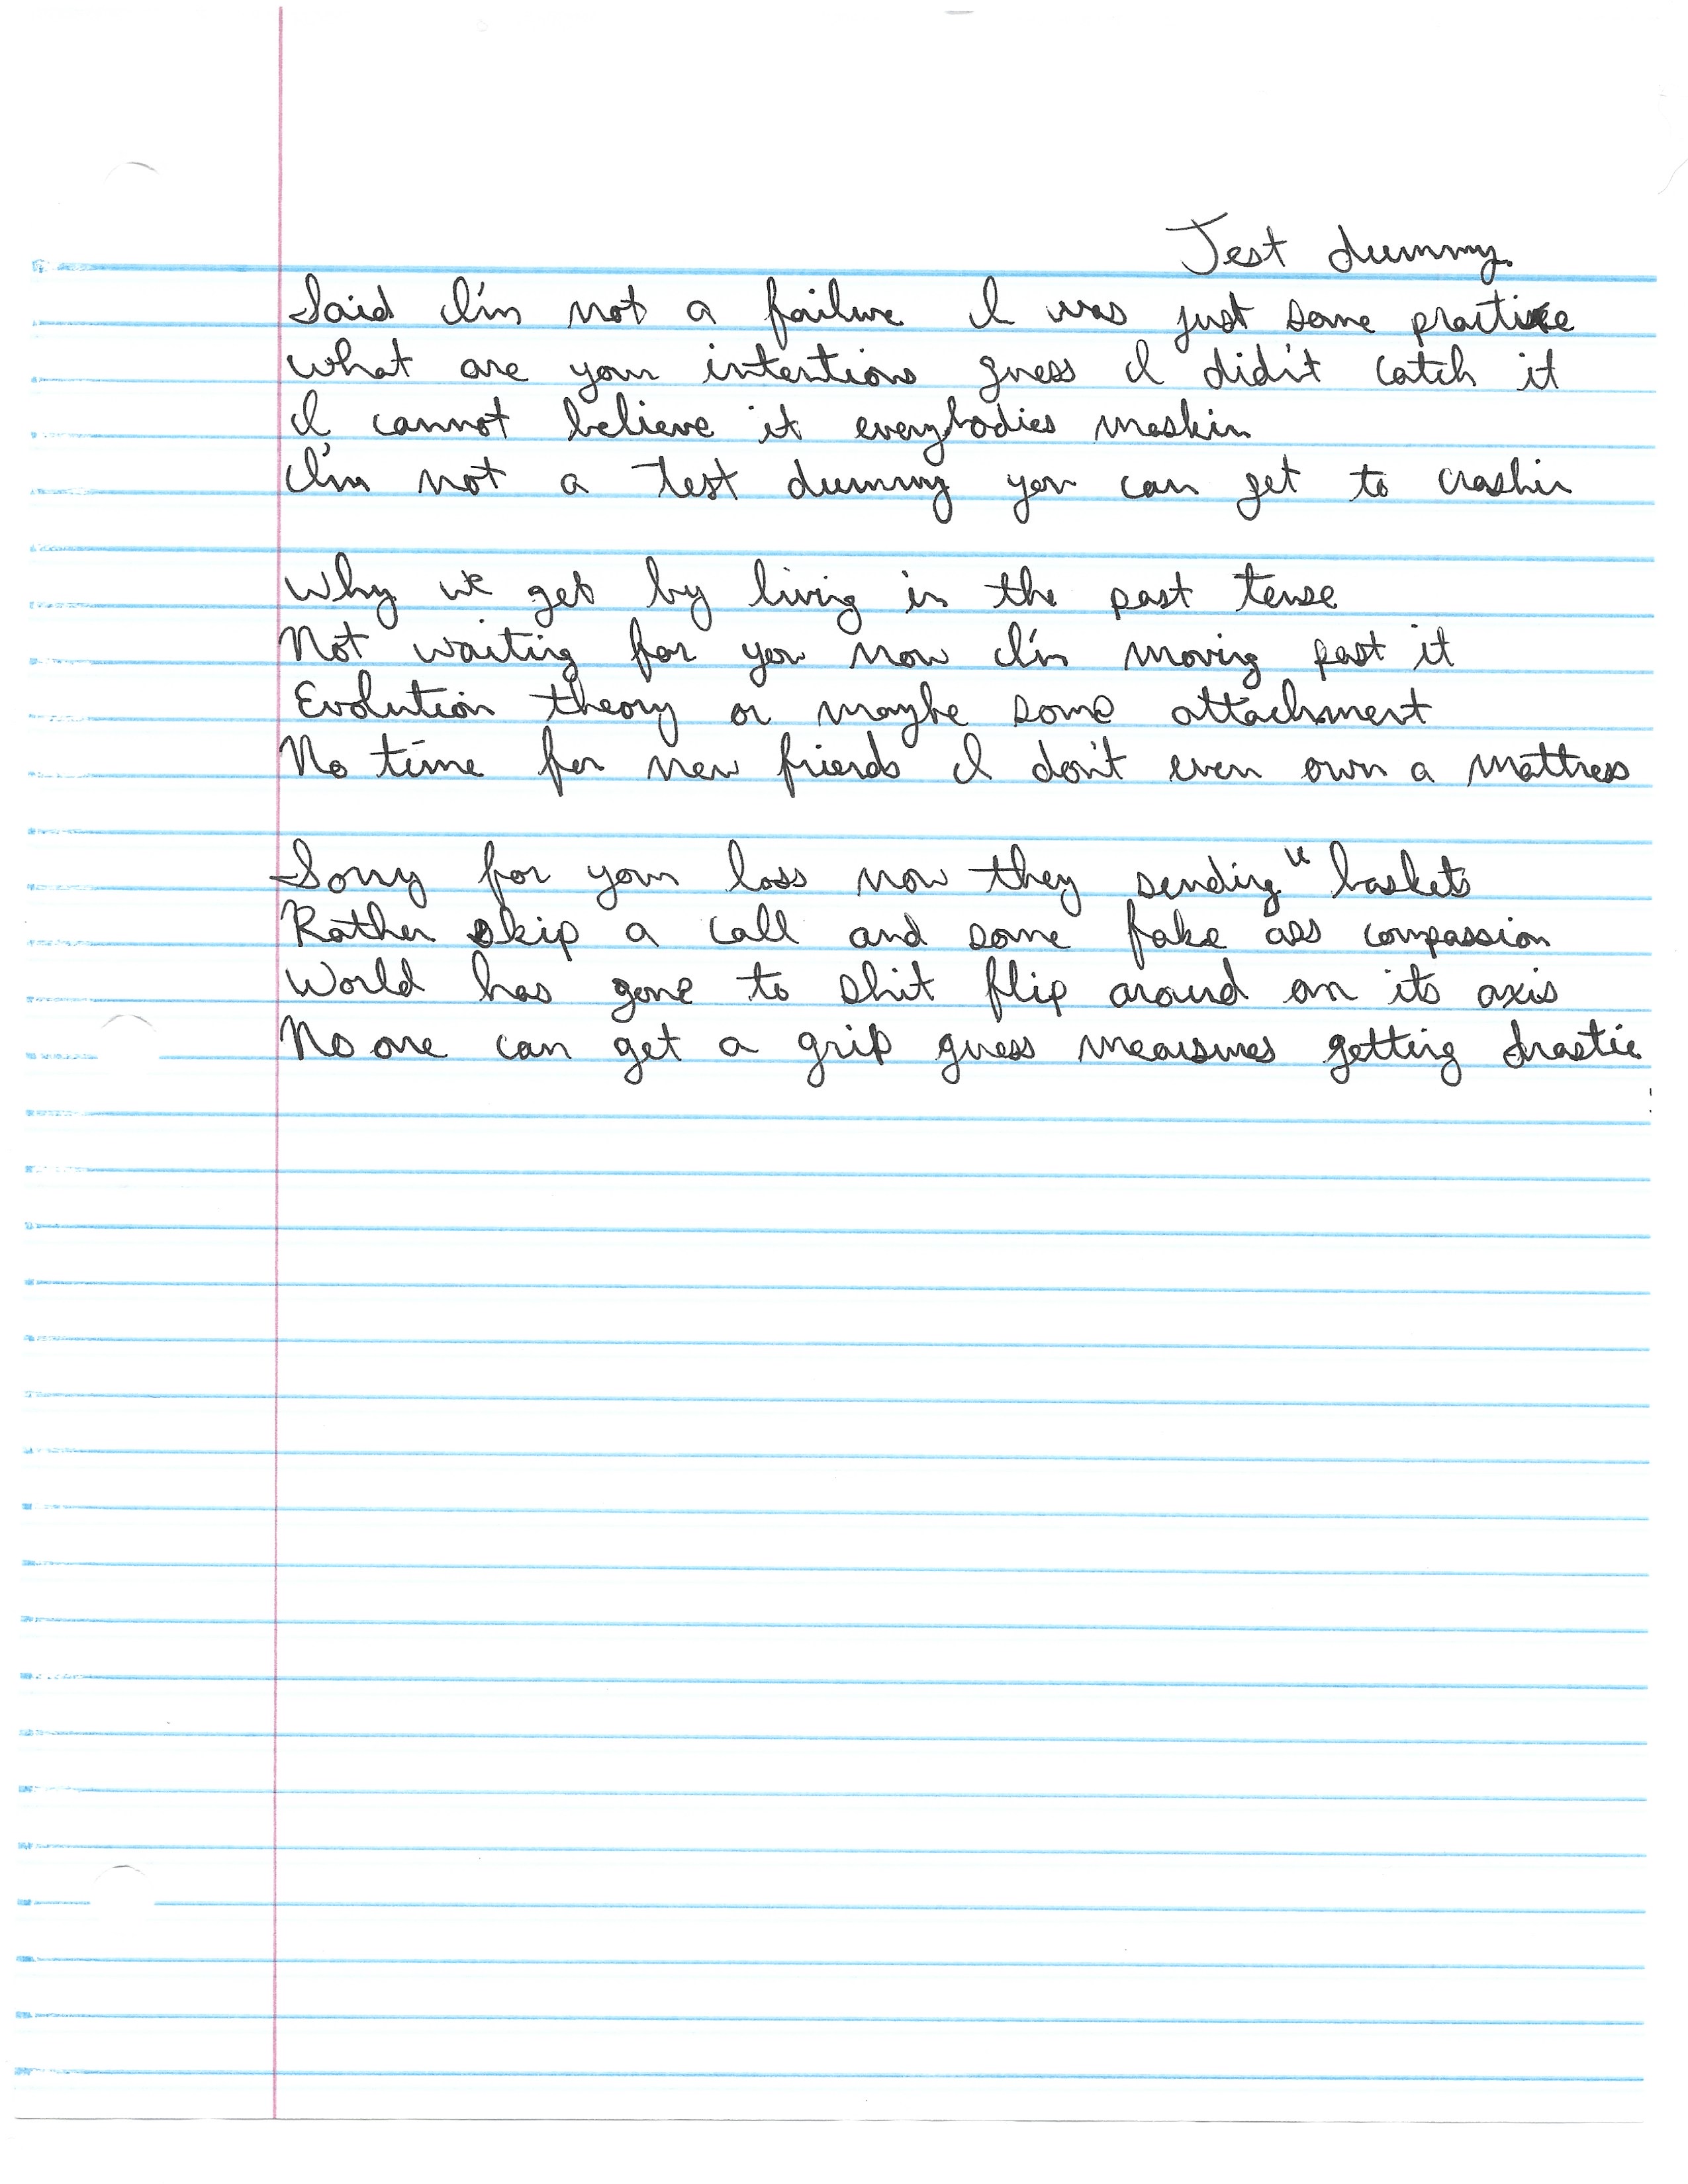 Test dummy
Said I'm not a failure I was just some practice
what are your intentions guess I didn't catch it
I cannot believe it everybodies maskin
I'm not a test dummy you can get to crashin
Why we get by living in the past tense
Not waiting for you now I'm moving past it
Evolution theory or maybe some attachment
No time for new friends I don't even own a mattress
Sorry for your loss now they sending us baskets
Rather skip a call and some fake ass compassion
World has gone to shit flip around on its axis
No one can get a grip guess measures getting drastic